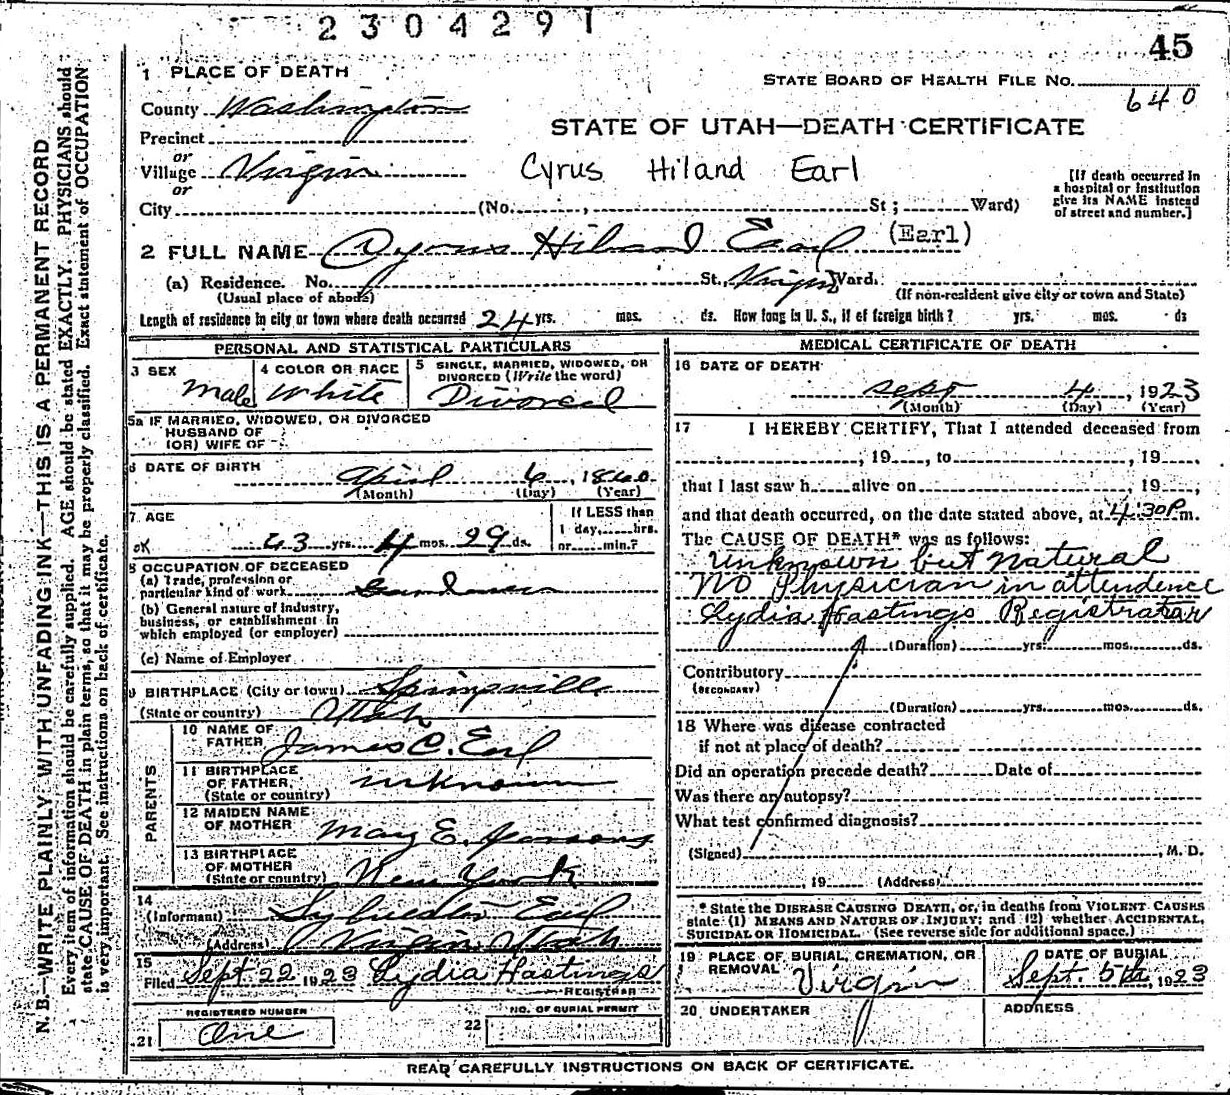 2304291
45
1 PLACE OF DEATH
STATE BOARD OF HEALTH FILE NO.
640
County Washington
STATE OF UTAH—DEATH CERTIFICATE
Precinct
or
Village Virgin
Cyrus Hiland Earl
[If death occurred in a hospital or institution give its NAME instead of street and number.]
or
City (No. , St ; Ward)
2 FULL NAME Cyrus Hiland Earl (Earl)
(a) Residence. No. St., Virgin Ward.
(Usual place of abode) (If non-resident give city or town and State)
Length of residence in city or town where death occurred 24 yrs. mos. ds. How long in U. S., if of foreign birth? yrs. mos. ds
PERSONAL AND STATISTICAL PARTICULARS
3 SEX
Male
4 COLOR OR RACE
White
5 SINGLE, MARRIED, WIDOWED, OR DIVORCED (Write the word)
Divorced
5a IF MARRIED, WIDOWED, OR DIVORCED
HUSBAND OF
(OR) WIFE OF
6 DATE OF BIRTH
April 6, 1860
(Month) (Day) (Year)
7 AGE
If LESS than
1 day, hrs.
or min.?
OK 63 yrs. 4 mos. 29 ds.
8 OCCUPATION OF DECEASED
(a) Trade, profession or
particular kind of work
(b) General nature of industry,
business, or establishment in
which employed (or employer)
(c) Name of Employer
9 BIRTHPLACE (City or town) Springville
(State or country) Utah
PARENTS
10 NAME OF FATHER James C. Earl
11 BIRTHPLACE OF FATHER, (State or country) unknown
12 MAIDEN NAME OF MOTHER Mary E. Parsons
13 BIRTHPLACE OF MOTHER (State or country) New York
14
(Informant) Sylvester Earl
(Address) Virgin Utah
15
Filed Sept 22 1923 Lydia Hastings
REGISTRAR
REGISTERED NUMBER
21 One
22 NO. OF BURIAL PERMIT
MEDICAL CERTIFICATE OF DEATH
16 DATE OF DEATH
Sept 4, 1923
(Month) (Day) (Year)
17 I HEREBY CERTIFY, That I attended deceased from
, 19 , to , 19 ,
that I last saw h alive on , 19 ,
and that death occurred, on the date stated above, at 4:30 P m.
The CAUSE OF DEATH* was as follows:
Unknown but Natural
No Physician in attendence
Lydia Hastings Registratar
(Duration) yrs. mos. ds.
Contributory
(SECONDARY)
(Duration) yrs. mos. ds.
18 Where was disease contracted
if not at place of death?
Did an operation precede death? Date of
Was there an autopsy?
What test confirmed diagnosis?
(Signed) , M. D.
, 19 (Address)
* State the DISEASE CAUSING DEATH, or, in deaths from VIOLENT CAUSES
state (1) MEANS AND NATURE OF INJURY; and (2) whether ACCIDENTAL,
SUICIDAL OR HOMICIDAL. (See reverse side for additional space.)
19 PLACE OF BURIAL, CREMATION, OR REMOVAL Virgin
DATE OF BURIAL
Sept. 5th, 1923
20 UNDERTAKER
ADDRESS
READ CAREFULLY INSTRUCTIONS ON BACK OF CERTIFICATE.
N. B.—WRITE PLAINLY, WITH UNFADING INK—THIS IS A PERMANENT RECORD
Every item of information should be carefully supplied. AGE should be stated EXACTLY. PHYSICIANS should
state CAUSE OF DEATH in plain terms, so that it may be properly classified. Exact statement of OCCUPATION
is very important. See instructions on back of certificate.